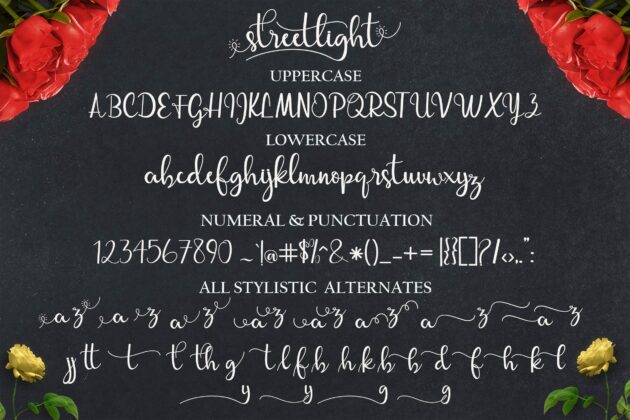 streetlight
UPPERCASE
ABCDEFGHIJKLMNOPQRSTUVWXYZ
LOWERCASE
abcdefghijklmnopqrstuvwxyz
NUMERAL & PUNCTUATION
1234567890 ~`!@#$%^&*()_-+=|{[]}?/<>,.":
ALL STYLISTIC ALTERNATES
az a z az az az az a z a z
jj tt t t th g t l f b h k b b d f h k l
y y g g